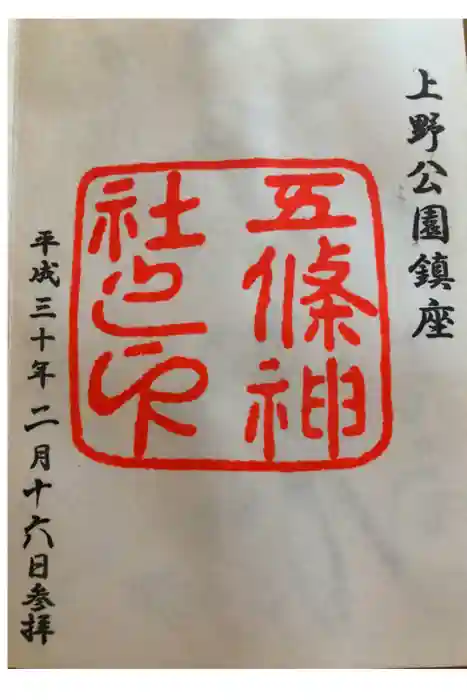 上野公園鎮座
五條神
社之印
平成三十年二月十六日参拝